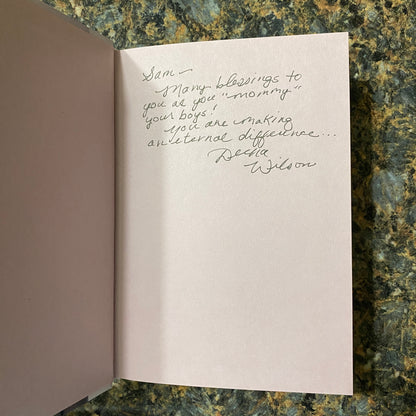 Sam –
Many blessings to
you as you "mommy"
your boys!
You are making
an eternal difference...
Wilson